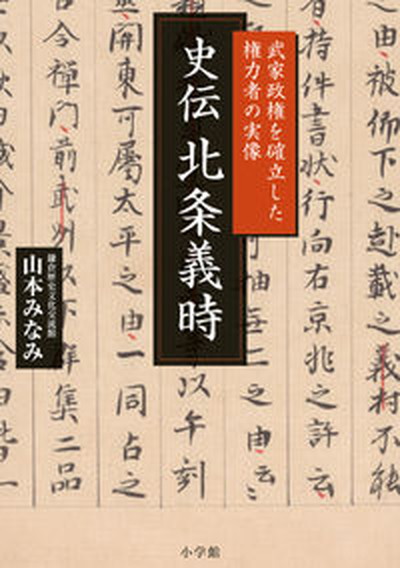 武家政権を確立した
権力者の実像
史伝 北条義時
鎌倉歴史文化交流館
山本みなみ
小学館
之由被仰下之趣載之義村不能
持件書状行向右京兆之許云
抽無二之由云々
以午刻
関東可屬太平之由一同占之
令禪門前武州以下群集二品